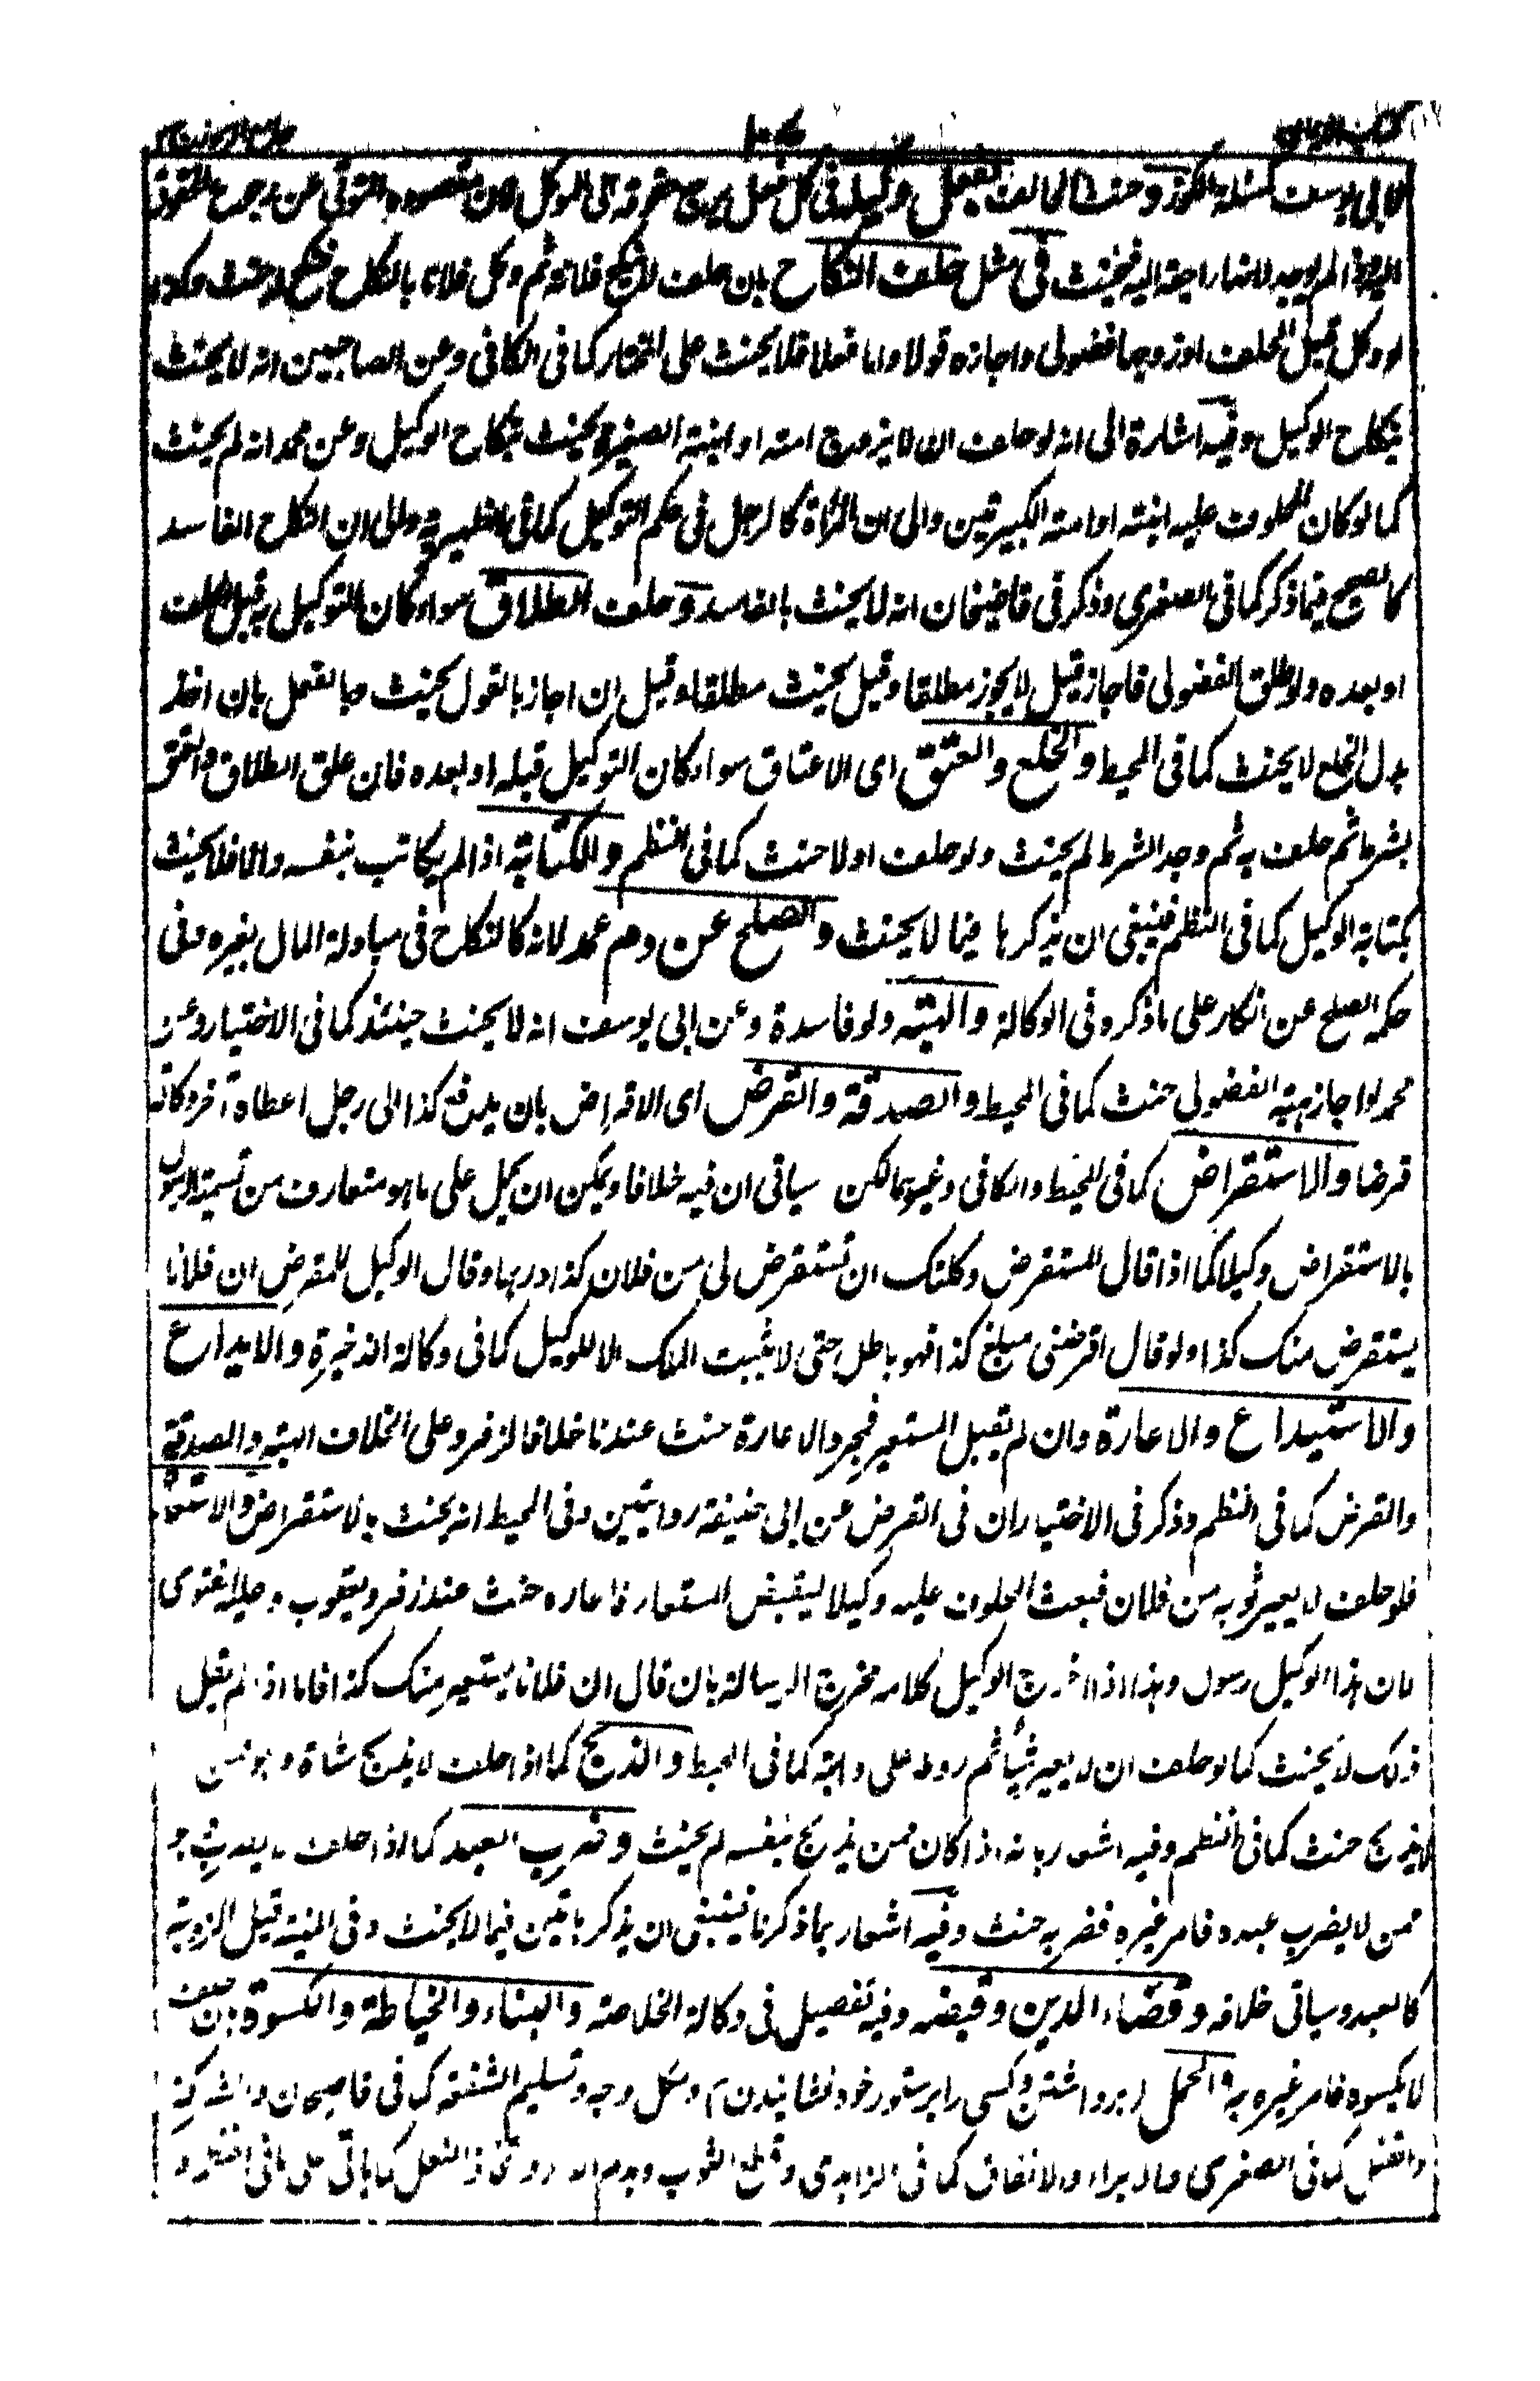 لابي يوسف كمسئلة الكوز وحنث الحالف بفعل وكيله في كل فعل يرجع حقوقه الى الموكل لان مقصوده التوقي عن رجوع الحقوق
اليه في مثل حلف النكاح بان حلف لا ينكح فلانة ثم وكل فلانا بالنكاح فنكح له حنث وكذا
لو وكل قبل الحلف او زوجها فضولي واجازه قولا واما فعلا فلا يحنث على المختار كما في الكافي وعن الصاحبين انه لا يحنث
بنكاح الوكيل وفيه اشارة الى انه لو حلف ان لا يزوج امته او ابنته الصغيرة يحنث بنكاح الوكيل وعن محمد انه لم يحنث
كما لو كان المحلوف عليه ابنته او امته الكبيرتين والى ان المرأة كالرجل في حكم التوكيل كما في الظهيرية والى ان النكاح الفاسد
كالصحيح فيما ذكر كما في الصغرى وذكر في قاضيخان انه لا يحنث بالفاسد وحلف الطلاق سواء كان التوكيل به قبل الحلف
او بعده ولو طلق الفضولي فاجاز قيل لا يجوز مطلقا وقيل يحنث مطلقا وقيل ان اجاز بالقول يحنث وبالفعل بان اخذ
بدل الخلع لا يحنث كما في المحيط والخلع والعتق اى الاعتاق سواء كان التوكيل قبله او بعده فان علق الطلاق والعتق
بشرط ثم حلف به ثم وجد الشرط لم يحنث ولو حلف اولا حنث كما في النظم والكتابة اذا لم يكاتب بنفسه والا فلا يحنث
بكتابة الوكيل كما في النظم فينبغي ان يذكرها فيما لا يحنث والصلح عن دم عمد لانه كالنكاح في مبادلة المال بغيره وفي
حكمه الصلح عن انكار على ما ذكروا في الوكالة والهبة ولو فاسدة وعن ابي يوسف انه لا يحنث حينئذ كما في الاختيار وعن
محمد لو اجاز هبة الفضولي حنث كما في المحيط والصدقة والقرض اى الاقراض بان يدفع كذا الى رجل اعطاه آخر وكالة
قرضا والاستقراض كما في المحيط والكافي وغيرهما لكن سياتي ان فيه خلافا ويمكن ان يحمل على ما هو متعارف من تسمية الرسول
بالاستقراض وكيلا كما اذا قال المستقرض وكلتك ان تستقرض لي من فلان كذا درهما وقال الوكيل للمقرض ان فلانا
يستقرض منك كذا ولو قال اقرضني مبلغ كذا فهو باطل حتى لا يثبت الملك الا للوكيل كما في وكالة الذخيرة والايداع
والاستيداع والاعارة وان لم يقبل المستعير فبمجرد الاعارة حنث عندنا خلافا لزفر وعلى الخلاف الهبة والصدقة
والقرض كما في النظم وذكر في الاختيار ان في القرض عن ابي حنيفة روايتين وفي المحيط انه يحنث بالاستقراض والاستعارة
فلو حلف لا يعير ثوبه من فلان فبعث المحلوف عليه وكيلا ليقبض المستعار فاعاره حنث عند زفر ويعقوب وعليه الفتوى
لان هذا الوكيل رسول وهذا اذا اخرج الوكيل كلامه مخرج الرسالة بان قال ان فلانا يستعير منك كذا فاما اذا لم يقل
ذلك لا يحنث كما لو حلف ان لا يعير شيأ ثم ردفه على دابته كما في المحيط والذبح كما اذا حلف لا يذبح شاة وهو ممن
لا يذبح حنث كما في النظم وفيه اشعار بانه اذا كان ممن يذبح بنفسه لم يحنث وضرب العبد كما اذا حلف وهو
ممن لا يضرب عبده فامر غيره فضربه حنث وفيه اشعار بما ذكرنا فينبغي ان يذكر هاتين فيما لا يحنث وفي المنية قيل الزوجة
كالعبد وسياتي خلافه وقضاء الدين وقبضه وفيه تفصيل في وكالة الخلاصة والبناء والخياطة والكسوة بان حلف
لا يكسوه فامر غيره به والحمل برداشتن وكسى را برستور خود نشانيدن وتسليم الشفعة كما في قاضيخان والشركة
والقتل كما في الصغرى والابراء والانفاق كما في الزاهدي وقطع الثوب وهدم الدار